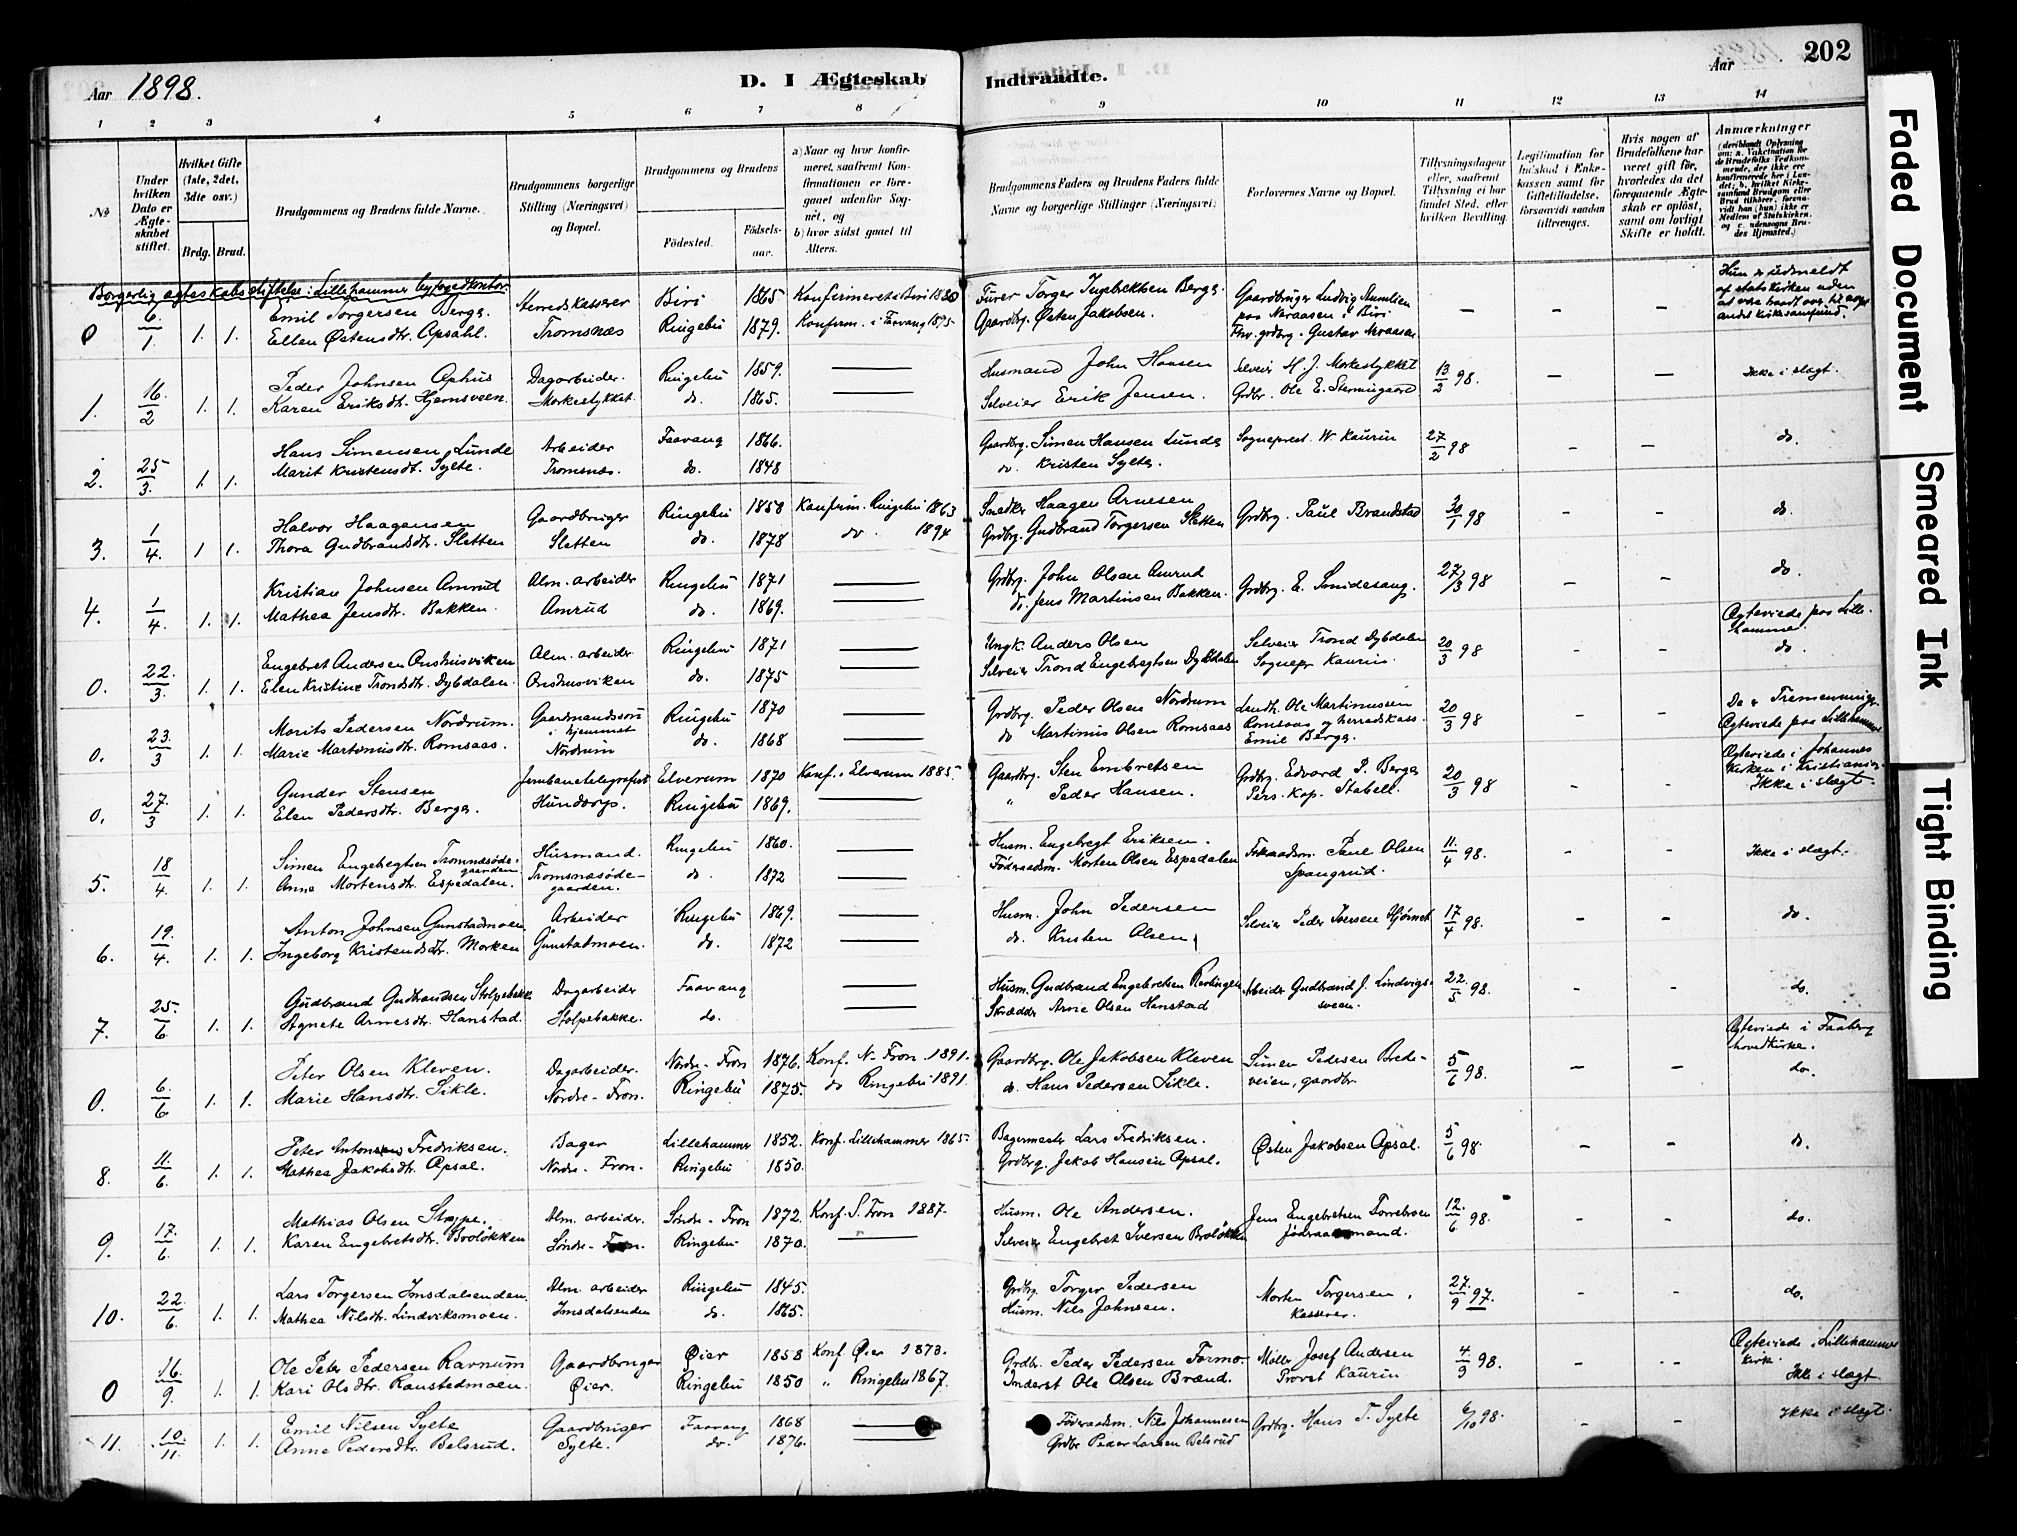 Aar 1898.
D. I Ægteskab
Indtraadte.
Aar
202
1 2 3 4 5 6 7 8 9 10 11 12 13 14
№
Under hvilken Dato er Ægteskabet stiftet.
Hvilket Gifte (1ste, 2det, 3dte osv.)
Brdg. Brud.
Brudgommens og Brudens fulde Navne.
Brudgommens borgerlige Stilling (Næringsvei) og Bopæl.
Brudgommens og Brudens
Födested.
Födsels-aar.
a) Naar og hvor konfirmeret, saafremt Konfirmationen er foregaaet udenfor Sognet, og
b) hvor sidst gaaet til Alters.
Brudgommens Faders og Brudens Faders fulde Navne og borgerlige Stillinger (Næringsvei)
Forlovernes Navne og Bopæl.
Tillysningsdagene eller, saafremt Tillysning ei har fundet Sted, efter hvilken Bevilling.
Legitimation for Indskud i Enkekassen samt for Giftetilladelse, forsaavidt saadan tiltrænges.
Hvis nogen af Brudefolkene har været gift för, hvorledes da det foregaaende Ægteskab er oplöst, samt om lovligt Skifte er holdt.
Anmærkninger
Borgerlig egteskabsstiftelse: Lillehammer byfogedkontor.
0 6/1 1. 1. Emil Torgersen Berge. Herredskasserer Biri 1865 Konfirmeret i Biri 1880 Furer Torger Ingebrektsen Berge. Gaardbruger Ludvig
Ellen Østensdtr. Opsahl. Tromsnæs Ringebu 1879. Konfirm. i Faavang 1895 Gaardbg. Østen Jakobsen. paa Næraasen i Biri
Fhv. grdbrg. Gustav Næraasen
Hun er udmeldt af statskirken uden at være traadt over til noget andet kirkesamfund.
1. 16/2 1. 1. Peder Johnsen Ophus Dagarbeider. Ringebu 1859. Husmand John Hansen Selveier H. J. Morkestykket 13/2 98. Ikke i slægt.
Karen Eriksdt. Hjemsveen. Morkestykket do. 1865. Selveier Erik Jensen. Grdbr. Ole E. Stenningaard
2. 25/3. 1. 1. Hans Simensen Lunde Arbeider Faavang 1866. Gaardbrg. Simen Hansen Lunde Sogneprest W. Kaurin 27/2 98 do.
Marit Kristensdt. Sylte. Tromsnæs. do. 1848 do. Kristen Sylte.
3. 1/4. 1 1. Halvor Haagensen Gaardbruger Ringebu 1858 Konfirm. Ringebu 1863 Snedker Haagen Arnesen Grdbrg. Paul Brandstad 30/1 98 do.
Thora Gudbrandsdtr. Sletten Sletten do. 1878 do. 1894 Grdbrg. Gudbrand Torgersen Sletten
4. 1/4. 1. 1. Kristian Johnsen Amrud Alm. arbeider Ringebu 1871 Grdbg. John Olsen Amrud Grdbrg. E. Smidesang. 27/3 98 do.
Mathea Jensdtr. Bakken. Amrud do. 1869. do. Jens Martinsen Bakken.
0. 22./3. 1. 1. Engebret Andersen Onshusviken Alm. arbeider Ringebu 1871 Ungk. Anders Olsen Selveier Trond Dybdalen 20/3 98 Egteviede paa Lillehammer.
Elen Kristine Trondsdtr. Dybdalen. Onshusviken do. 1875 Selveier Trond Engebregtsen Dybdalen Sognepr. Kaurin. do.
0. 23./3 1. 1. Morits Pedersen Nordrum. Gaardmandssøn i hjemmet Ringebu 1870 Grdbrg. Peder Olsen Nordrum Lendh. Ole Martinussen 20/3 98 De er Tremenninge
Marie Martinusdtr. Romsaas. Nordrum do. 1868 do. Martinus Olsen Romsaas Romsaas og herredskass. Emil Berge. Egteviede paa Lillehammer
0. 27./3 1. 1. Gunder Stensen Jernbanetelegrafist Elverum 1870 Konf. i Elverum 1885. Gaardbg. Sten Embretsen Grdbrg. Edvard P. Berge 20/3 98 Egteviede i Johannes kirken i Kristiania.
Elen Pedersdtr. Berge. Hundorp. Ringebu 1869. " Peder Hansen. Pers. Kap. Stabell. Ikke i slægt.
5. 18/4. 1. 1. Simen Engebregtsen Tromnæsødegaarden Husmand. Ringebu 1860. Husm. Engebregt Eriksen. Paul Olsen 11./4 98. Ikke i slægt.
Anne Mortensdtr. Espedalen. Tromsnæsødegaarden. do. 1872 Føderaadsm. Morten Olsen Espedalen Spangrud.
6. 19./4. 1. 1. Anton Johnsen Gunstadmoen Arbeider Ringebu 1869. Husm. John Pedersen Selveier Peder Iversen Hjørnet 17/4 98. do.
Ingeborg Kristensdtr. Morken Gunstadmoen. do. 1872 do. Kristen Olsen
7. 25./6 1. 1. Gudbrand Gudbrandsen Stolpebakke Dagarbeider Faavang Husm. Gudbrand Engebretsen Revlingen Arbeider Gudbrand J. Lindvigs- 22./5 98. do.
Agnete Arnesdtr. Hanstad. Stolpebakke. do. Skrædder Arne Olsen Hanstad sveen.
0. 6./6 1. 1. Peter Olsen Kleven. Dagarbeider. Nordre-Fron 1876. Konf. N-Fron. 1891. Gaardbrg. Ole Jakobsen Kleven Simen Pedersen Brede- 5/6 98. Egteviede i Faaberg hovedkirke.
Marie Hansdtr. Sikle. Nordre-Fron. Ringebu 1875. do Ringebu 1891. do. Hans Pedersen Sikle. veien, gaardbr. do.
8. 11./6. 1. 1. Peter Antonsen Fredriksen. Bager Lillehammer 1852. Konf. Lillehammer 1865. Bagermester Lars Fredriksen. Østen Jakobsen Opsal. 5/6 98. do.
Mathea Jakobsdtr. Opsal. Nordre-Fron. Ringebu 1850. Grdbrg. Jakob Hansen Opsal.
9. 17./6. 1. 1. Mathias Olsen Alm. arbeider. Søndre-Fron 1872. Konf. S. Fron 1887. Husm. Ole Andersen. Jens Engebretsen 12./6 98. do.
Karen Engebretsdtr. Broløkken Søndre-Fron. Ringebu 1870. Selveier Engebret Iversen Broløkken
10. 22./6. 1. 1. Lars Torgersen Imsdalsenden Alm. arbeider Ringebu 1845. Grdbrg. Torger Pedersen Morten Torgersen, 27./9 97. do.
Mathea Nilsdtr. Lindviksmoen. Imsdalsenden do. 1865. Husm. Nils Johnsen. kasserer.
0 16./9. 1. 1. Ole Peter Pedersen Ravnum Gaardbruger Øier 1858 Konf. Øier 1873. Grdbr. Peder Pedersen Formo. Møller Josef Andersen 4/9 98. Egteviede i Lillehammer kirke.
Kari Olsdtr. Ranstedmoen. Øier. Ringebu 1850 " Ringebu 1867. Inderst Ole Olsen Brænd. Provst Kaurin Ikke i slægt
11. 10./11. 1. 1. Emil Nilsen Sylte Gaardbruger Faavang 1868 Føderaadsm. Nils Johannesen Grdbrg. Hans T. Sylte 6/10 98. Ikke i slægt.
Anne Pedersdtr. Belsrud. Sylte. do. 1876. Grdbr Peder Larsen Belsrud
Faded Document
Smeared Ink
Tight Binding